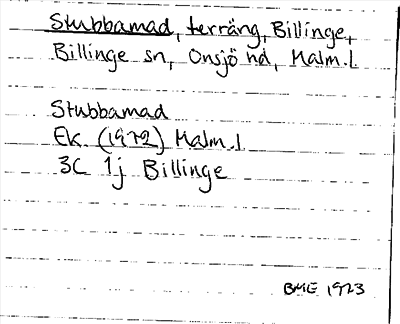 Stubbamad, terräng, Billinge,
Billinge sn, Onsjö hd, Malm.l.
Stubbamad
Ek. (1972) Malm.l
3C 1j Billinge
BME 1923